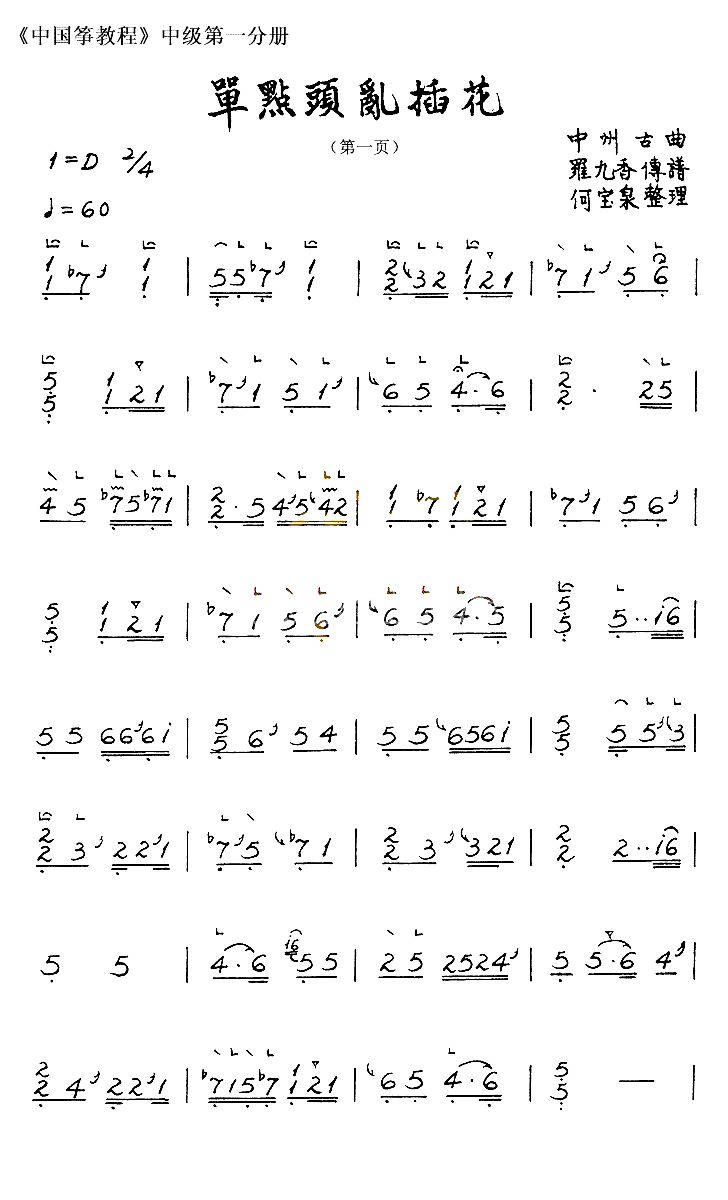 《中国筝教程》中级第一分册
單點頭亂插花
（第一页）
1=D 2/4
♩=60
中州古曲
羅九香傳譜
何宝泉整理
1 1 ♭7 1 1 | 5 5 ♭7 1 1 | 2 2 3 2 1 1 2 1 | ♭7 1 5 6 |
5 5 1 1 2 1 | ♭7 1 5 1 | 6 5 4 · 6 | 2 2 · 2 5 |
4 5 ♭7 5 ♭7 1 | 2 2 · 5 4 5 4 2 | 1 1 ♭7 1 1 2 1 | ♭7 1 5 6 |
5 5 1 1 2 1 | ♭7 1 5 6 | 6 5 4 · 5 | 5 5 5 · · i 6 |
5 5 6 6 6 i | 5 5 6 5 4 | 5 5 6 5 6 i | 5 5 5 5 3 |
2 2 3 2 2 1 | ♭7 5 ♭7 1 | 2 2 3 3 2 1 | 2 2 2 · · i 6 |
5 5 | 4 · 6 i6 5 5 | 2 5 2 5 2 4 | 5 5 · 6 4 |
2 2 4 2 2 1 | ♭7 1 5 ♭7 1 1 2 1 | 6 5 4 · 6 | 5 5 — |